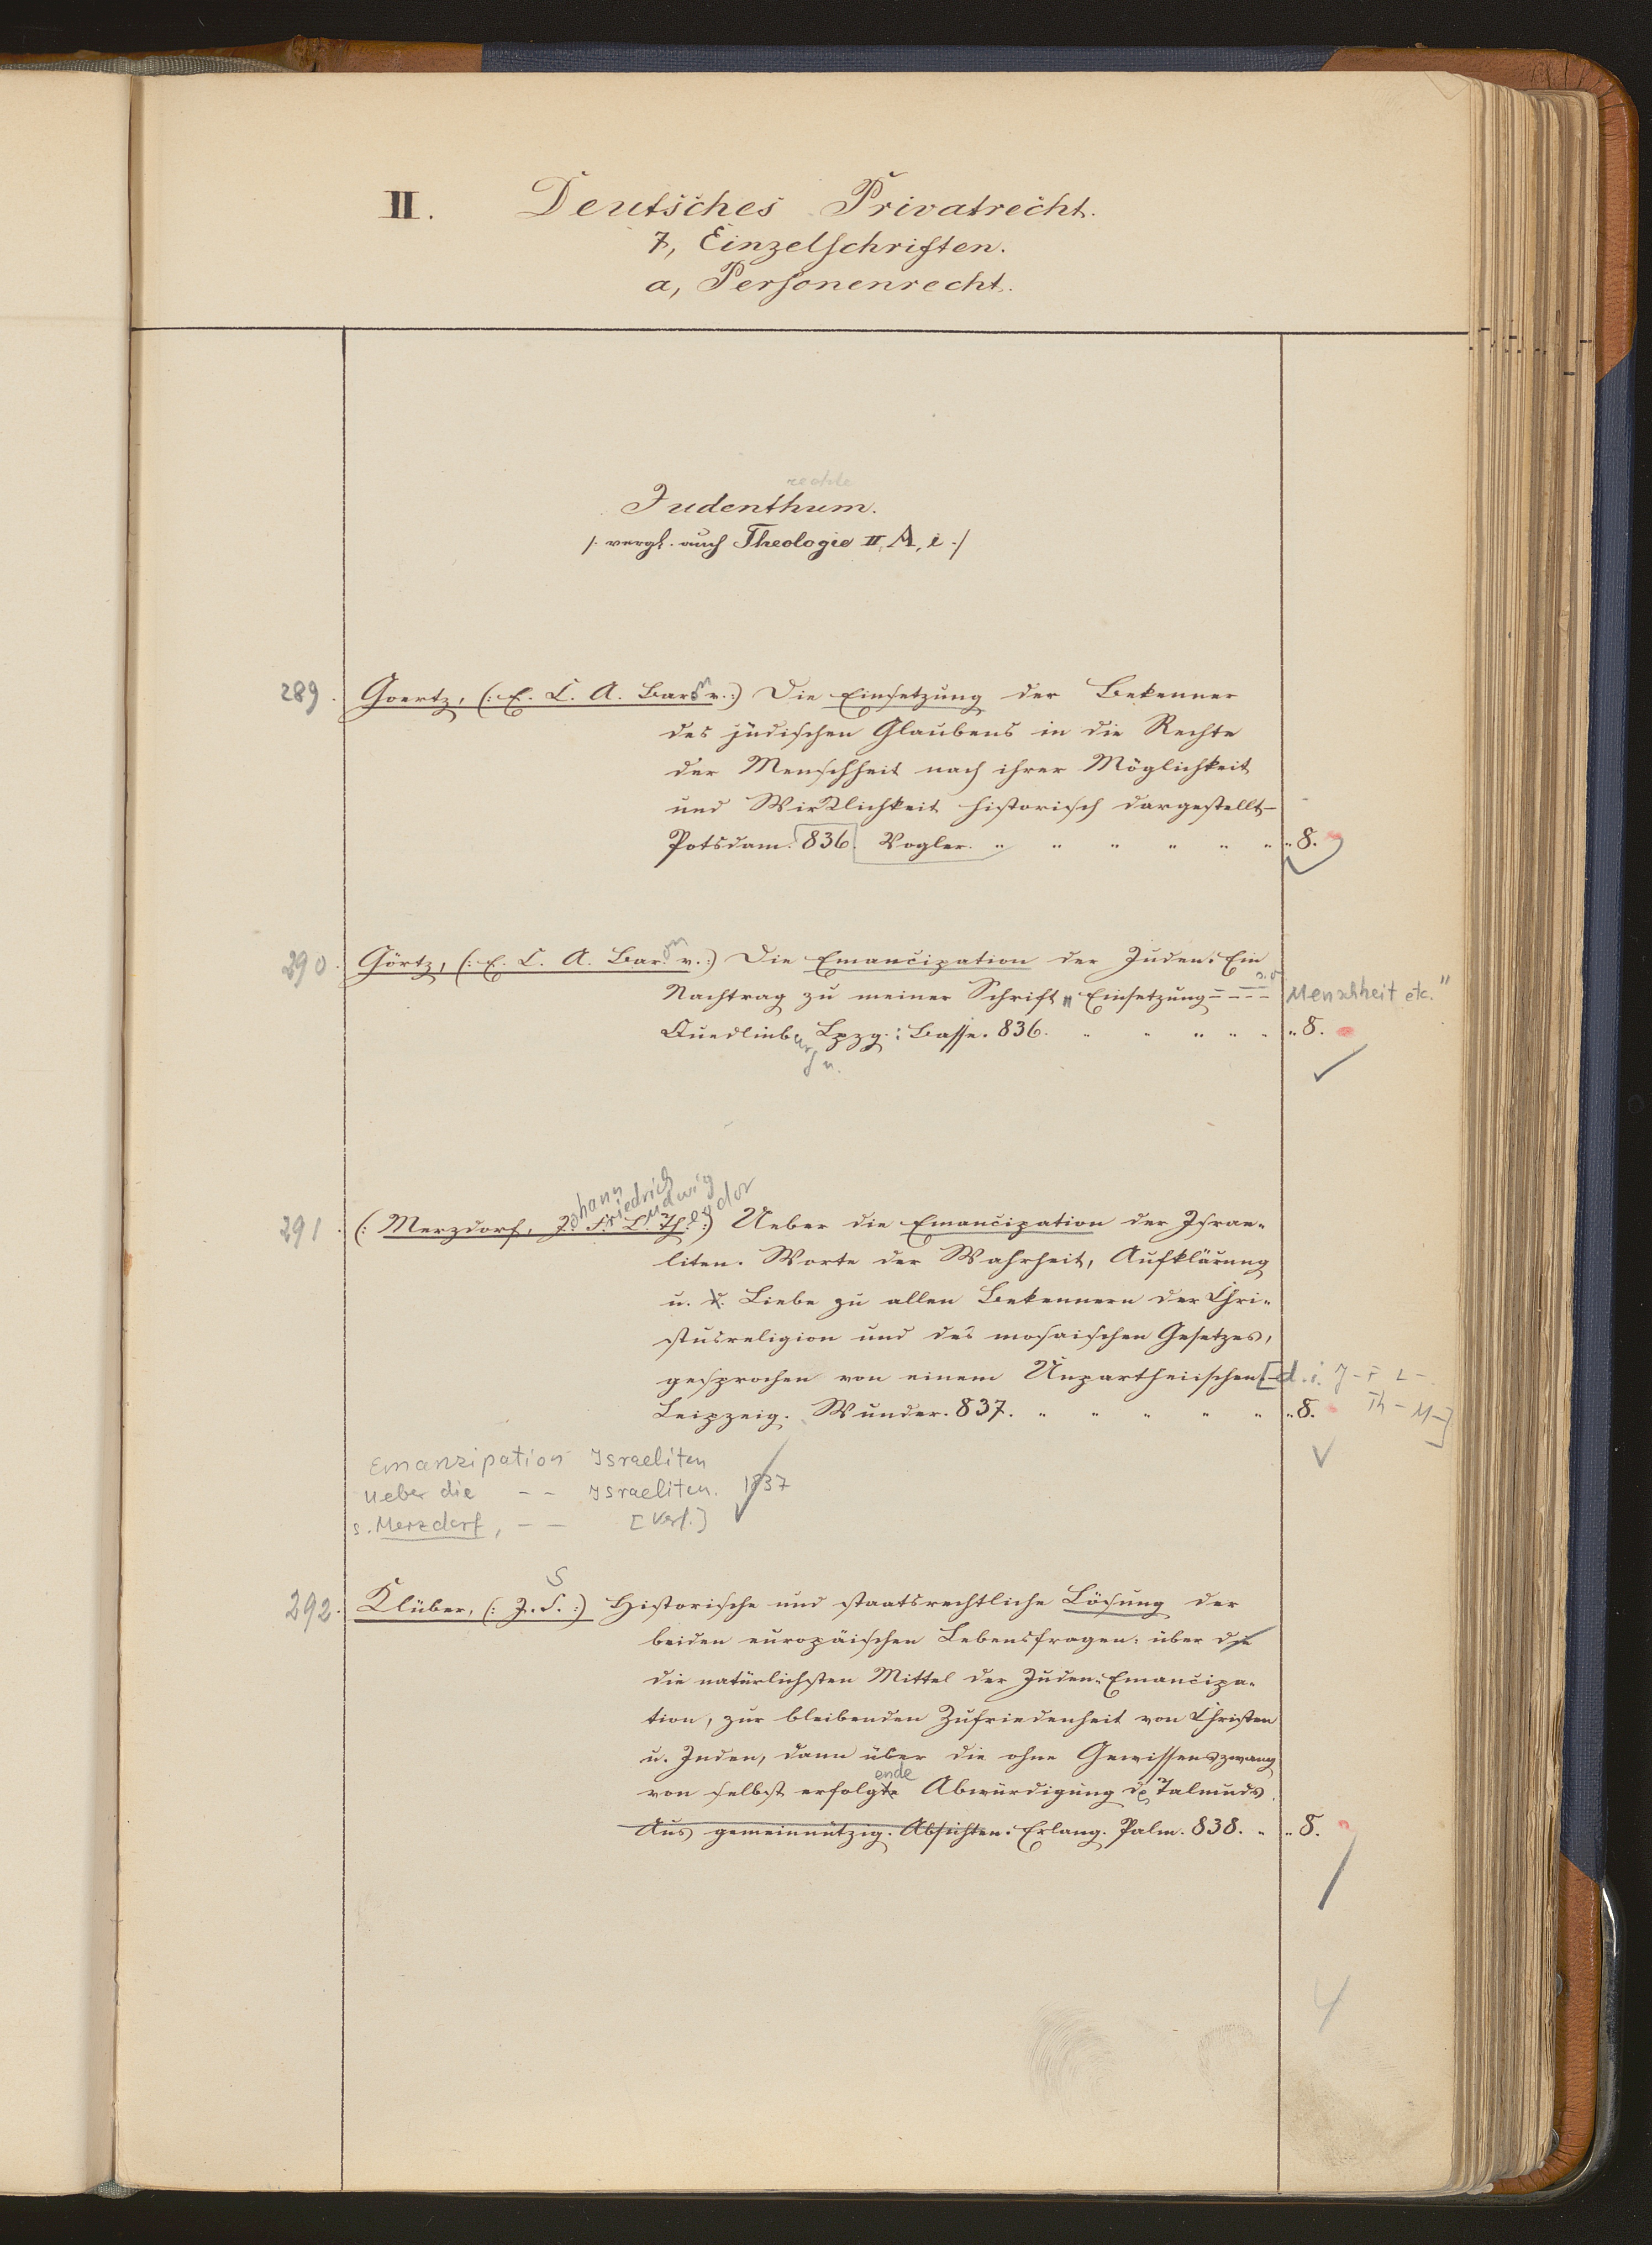 II. Deutsches Privatrecht.
7, Einzelschriften.
a, Personenrecht.
rechte
Judenthum.
/. vergl. auch Theologie II, A, i ./
289. Goertz, (: E. C. A. Baron v. :) Die Einsetzung der Bekenner
des jüdischen Glaubens in die Rechte
der Menschheit nach ihrer Möglichkeit
und Wirklichkeit historisch dargestellt
Potsdam. 836. Vogler. " " " " " " " 8.
290. Görtz, (: E. C. A. Baron v. :) Die Emancipation der Juden: Ein
Nachtrag zu meiner Schrift „Einsetzung - - - - Menschheit etc."
Quedlinburg u. Lpzg.: Basse. 836. " " " " " " 8.
Johann Friedrich Ludwig Theodor
291. (: Merzdorf, J. F. L. Th. :) Ueber die Emancipation der Israe-
liten. Worte der Wahrheit, Aufklärung
u. d. Liebe zu allen Bekennern der Chri-
stusreligion und des mosaischen Gesetzes,
gesprochen von einem Unpartheiischen [d. i. J- F- L-
Th- M-]
Leipzeig. Wunder. 837. " " " " " " 8.
Emanzipation Israeliten
Ueber die - - Israeliten. 1837
s. Merzdorf, - - [Verf.]
S
292. Klüber, (: J. S. :) Historische und staatsrechtliche Lösung der
beiden europäischen Lebensfragen: über die
die natürlichsten Mittel der Juden-Emancipa-
tion, zur bleibenden Zufriedenheit von Christen
u. Juden, dann über die ohne Gewissenszwang
ende
von selbst erfolgte Abwürdigung des Talmuds.
Aus gemeinnützig. Absichten. Erlang. Palm. 838. " " 8.
4